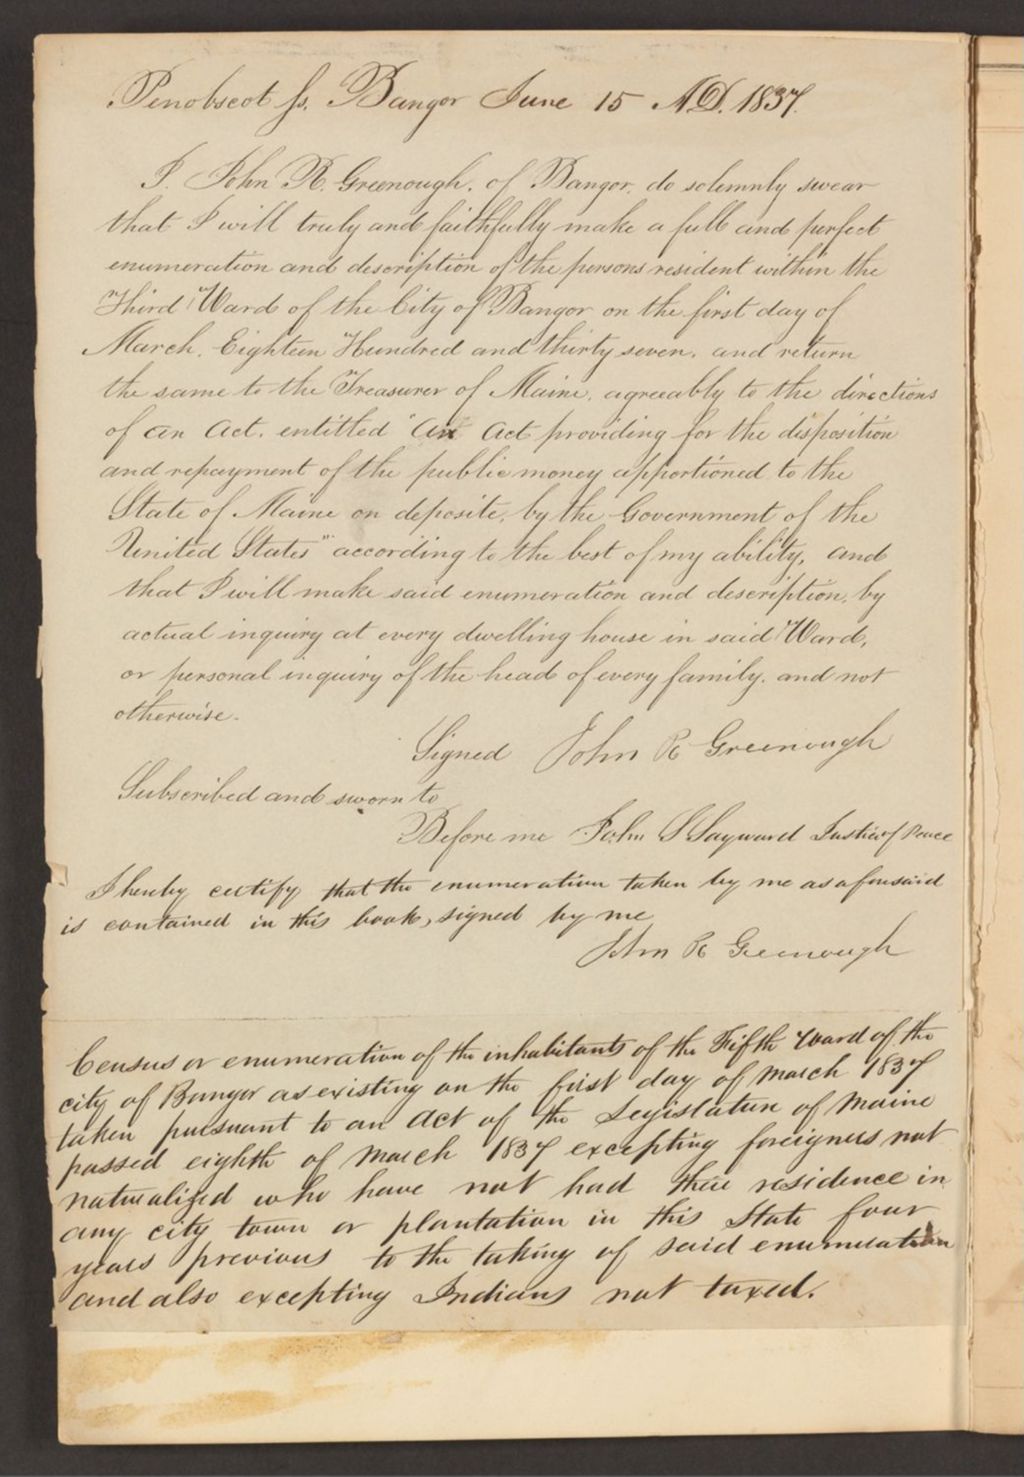 Penobscot ss. Bangor June 15 A.D. 1837.
I. John R. Greenough, of Bangor, do solemnly swear
that I will truly and faithfully make a full and perfect
enumeration and description of the persons resident within the
Third Ward of the City of Bangor on the first day of
March, Eighteen Hundred and thirty seven, and return
the same to the Treasurer of Maine, agreeably to the directions
of an Act, entitled "An Act providing for the disposition
and repayment of the public money apportioned to the
State of Maine on deposite, by the Government of the
United States" according to the best of my ability, and
that I will make said enumeration and description, by
actual inquiry at every dwelling house in said Ward,
or personal inquiry of the head of every family, and not
otherwise.
Signed John R Greenough
Subscribed and sworn to
Before me John S Sayward Justice of Peace
I hereby certify that the enumeration taken by me as aforesaid
is contained in this book, signed by me
John R Greenough
Census or enumeration of the inhabitants of the Fifth Ward of the
city of Bangor as existing on the first day of March 1837
taken pursuant to an Act of the Legislature of Maine
passed eighth of March 1837 excepting foreigners not
naturalized who have not had their residence in
any city town or plantation in this State four
years previous to the taking of said enumeration
and also excepting Indians not taxed.